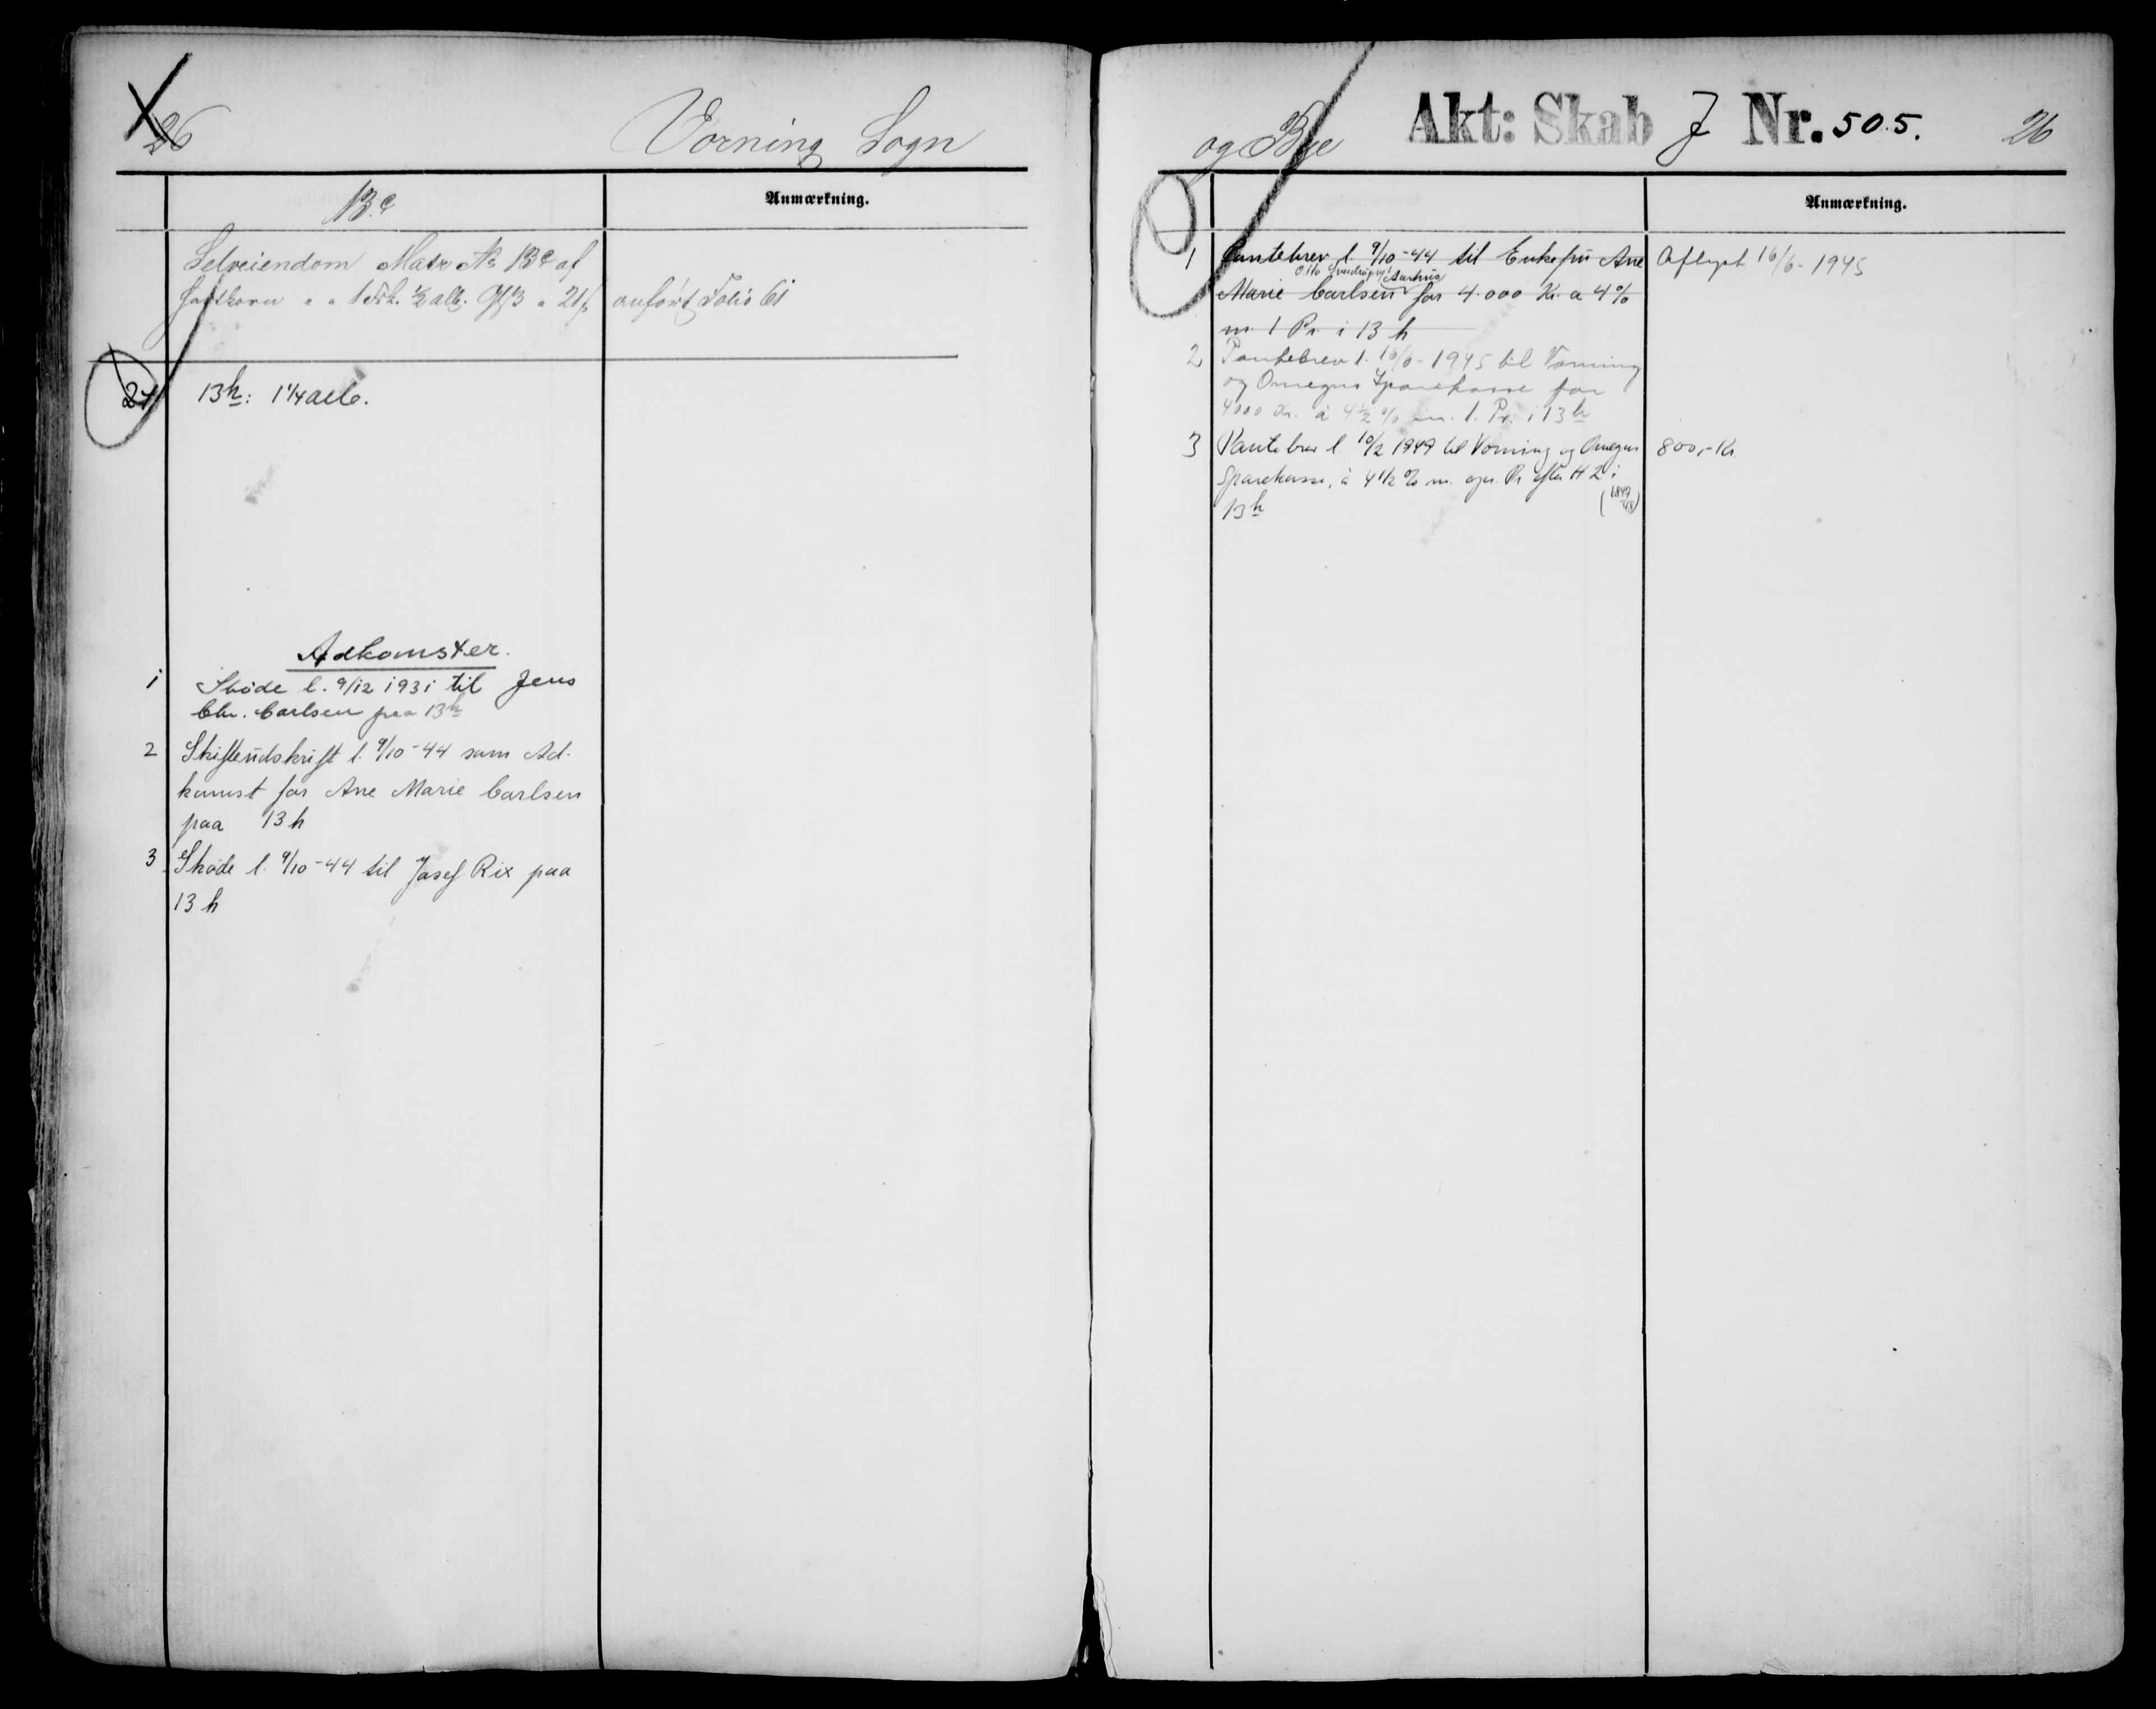 26
Vorning Sogn
13c
Anmærkning.
Selveiendom Matr No 13c af
Hartkorn " " 1 Fdk. ½ alb. " 21
anført Folio 61
24
13h: 1¼ alb.
Adkomster.
1 Skøde l. 9/12 1931 til Jens
Chr. Carlsen paa 13h
2 Skifteudskrift l. 9/10-44 som Ad-
komst for Ane Marie Carlsen
paa 13h
3 Skøde l. 9/10-44 til Josef Rix paa
13h
og Bye
Akt: Skab J Nr. 505.
26
Anmærkning.
1 Pantebrev l. 9/10-44 til Enkefru Ane
Aarhus
Marie Carlsen for 4.000 Kr. a 4%
m 1 Pr. i 13 h
Aflyst 16/6-1945
2 Pantebrev l. 16/6-1945 til Vorning
og Omegns Sparekasse for
4000 Kr. à 4½ % m. 1. Pr. i 13h
3 Pantebrev l. 10/2 1949 til Vorning og Omegns
Sparekasse, à 4 1/2 % m. opr. Pr efter H 2 i
13h
800,- Kr.